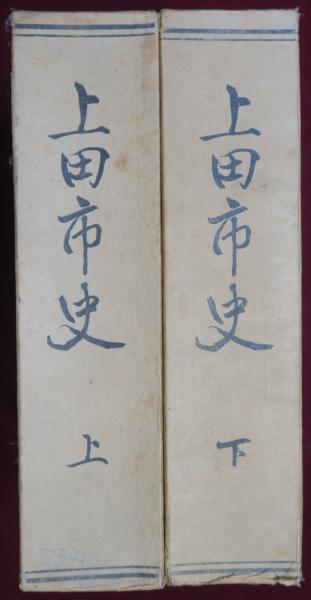 上田市史 上
上田市史 下